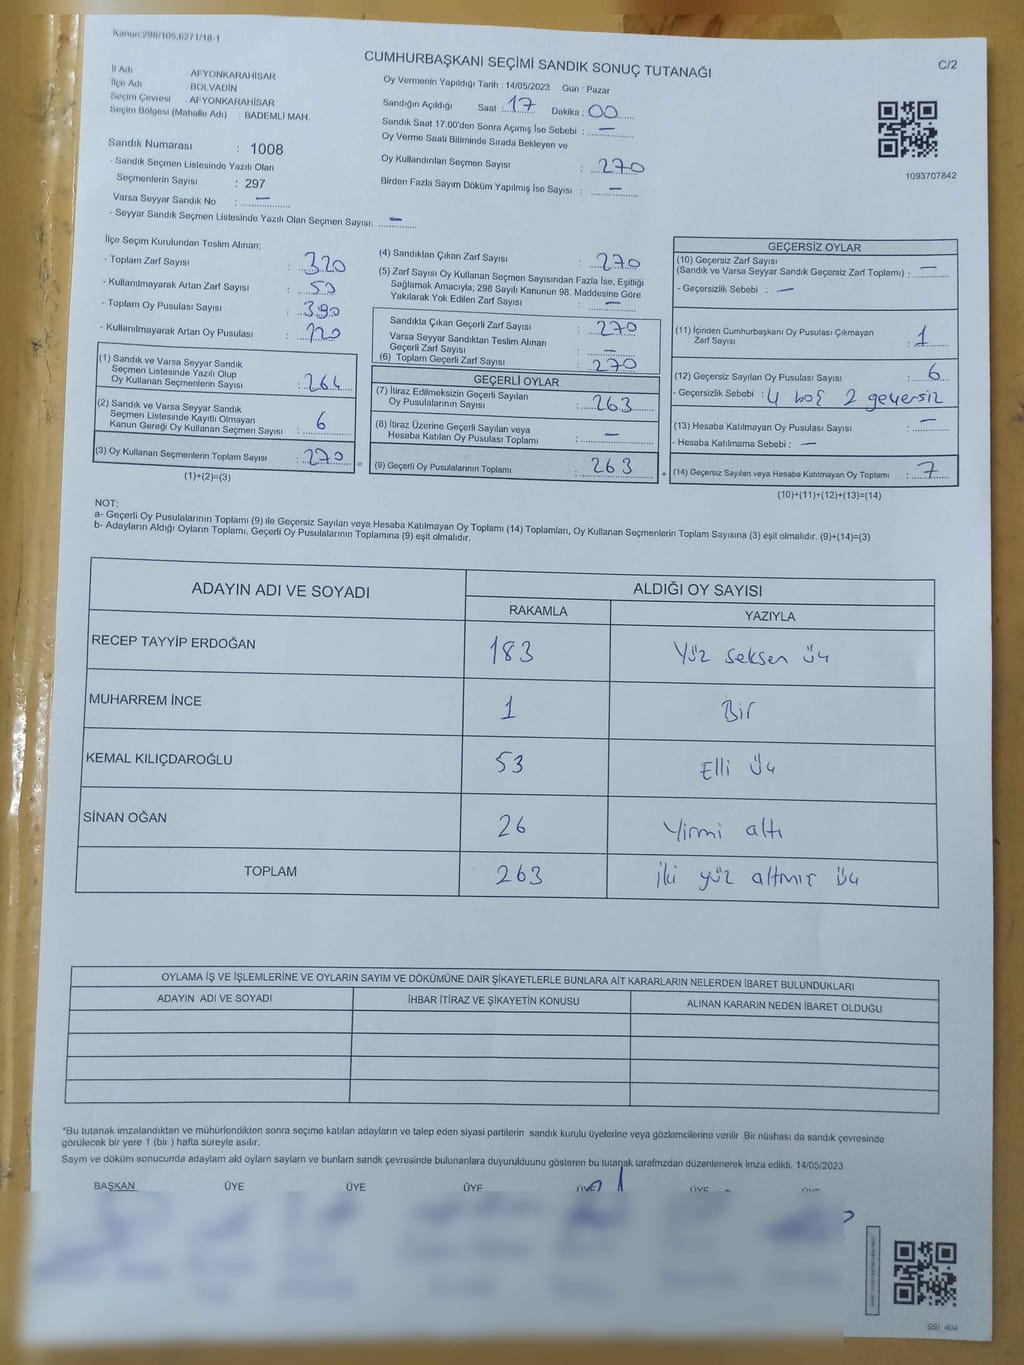 Kanun:298/105,6271/18-1
CUMHURBAŞKANI SEÇİMİ SANDIK SONUÇ TUTANAĞI
C/2
İl Adı : AFYONKARAHİSAR
İlçe Adı : BOLVADİN
Seçim Çevresi : AFYONKARAHİSAR
Seçim Bölgesi (Mahalle Adı) : BADEMLİ MAH.
Sandık Numarası : 1008
- Sandık Seçmen Listesinde Yazılı Olan
Seçmenlerin Sayısı : 297
Varsa Seyyar Sandık No : —
- Seyyar Sandık Seçmen Listesinde Yazılı Olan Seçmen Sayısı: —
Oy Vermenin Yapıldığı Tarih : 14/05/2023 Gün : Pazar
Sandığın Açıldığı Saat : 17 Dakika : 00
Sandık Saat 17:00'den Sonra Açımış İse Sebebi : —
Oy Verme Saati Bitiminde Sırada Bekleyen ve
Oy Kullandırılan Seçmen Sayısı : 270
Birden Fazla Sayım Döküm Yapılmış İse Sayısı : —
1093707842
İlçe Seçim Kurulundan Teslim Alınan;
- Toplam Zarf Sayısı : 320
- Kullanılmayarak Artan Zarf Sayısı : 50
- Toplam Oy Pusulası Sayısı : 390
- Kullanılmayarak Artan Oy Pusulası : 120
(1) Sandık ve Varsa Seyyar Sandık
Seçmen Listesinde Yazılı Olup
Oy Kullanan Seçmenlerin Sayısı : 264
(2) Sandık ve Varsa Seyyar Sandık
Seçmen Listesinde Kayıtlı Olmayan
Kanun Gereği Oy Kullanan Seçmen Sayısı : 6
(3) Oy Kullanan Seçmenlerin Toplam Sayısı : 270 =
(1)+(2)=(3)
(4) Sandıktan Çıkan Zarf Sayısı : 270
(5) Zarf Sayısı Oy Kullanan Seçmen Sayısından Fazla İse, Eşitliği
Sağlamak Amacıyla; 298 Sayılı Kanunun 98. Maddesine Göre
Yakılarak Yok Edilen Zarf Sayısı : —
Sandıkta Çıkan Geçerli Zarf Sayısı : 270
Varsa Seyyar Sandıktan Teslim Alınan
Geçerli Zarf Sayısı : —
(6) Toplam Geçerli Zarf Sayısı : 270
GEÇERLİ OYLAR
(7) İtiraz Edilmeksizin Geçerli Sayılan
Oy Pusulalarının Sayısı : 263
(8) İtiraz Üzerine Geçerli Sayılan veya
Hesaba Katılan Oy Pusulası Toplamı : —
(9) Geçerli Oy Pusulalarının Toplamı : 263 +
GEÇERSİZ OYLAR
(10) Geçersiz Zarf Sayısı
(Sandık ve Varsa Seyyar Sandık Geçersiz Zarf Toplamı) : —
- Geçersizlik Sebebi : —
(11) İçinden Cumhurbaşkanı Oy Pusulası Çıkmayan
Zarf Sayısı : 1
(12) Geçersiz Sayılan Oy Pusulası Sayısı : 6
- Geçersizlik Sebebi : 4 boş 2 geçersiz
(13) Hesaba Katılmayan Oy Pusulası Sayısı : —
- Hesaba Katılmama Sebebi : —
(14) Geçersiz Sayılan veya Hesaba Katılmayan Oy Toplamı : 7
(10)+(11)+(12)+(13)=(14)
NOT:
a- Geçerli Oy Pusulalarının Toplamı (9) ile Geçersiz Sayılan veya Hesaba Katılmayan Oy Toplamı (14) Toplamları, Oy Kullanan Seçmenlerin Toplam Sayısına (3) eşit olmalıdır. (9)+(14)=(3)
b- Adayların Aldığı Oyların Toplamı, Geçerli Oy Pusulalarının Toplamına (9) eşit olmalıdır.
ADAYIN ADI VE SOYADI ALDIĞI OY SAYISI
RAKAMLA YAZIYLA
RECEP TAYYİP ERDOĞAN 183 Yüz seksen üç
MUHARREM İNCE 1 Bir
KEMAL KILIÇDAROĞLU 53 Elli üç
SİNAN OĞAN 26 Yirmi altı
TOPLAM 263 iki yüz altmış üç
OYLAMA İŞ VE İŞLEMLERİNE VE OYLARIN SAYIM VE DÖKÜMÜNE DAİR ŞİKAYETLERLE BUNLARA AİT KARARLARIN NELERDEN İBARET BULUNDUKLARI
ADAYIN ADI VE SOYADI İHBAR İTİRAZ VE ŞİKAYETİN KONUSU ALINAN KARARIN NEDEN İBARET OLDUĞU
*Bu tutanak imzalandıktan ve mühürlendikten sonra seçime katılan adayların ve talep eden siyasi partilerin sandık kurulu üyelerine veya gözlemcilerine verilir .Bir nüshası da sandık çevresinde
görülecek bir yere 1 (bir ) hafta süreyle asılır.
Saym ve döküm sonucunda adaylam ald oylarn saylarn ve bunlarn sandk çevresinde bulunanlara duyurulduunu gösteren bu tutanak tarafmzdan düzenlenerek imza edildi. 14/05/2023
BAŞKAN ÜYE ÜYE ÜYE ÜYE ÜYE ÜYE
SSI_404